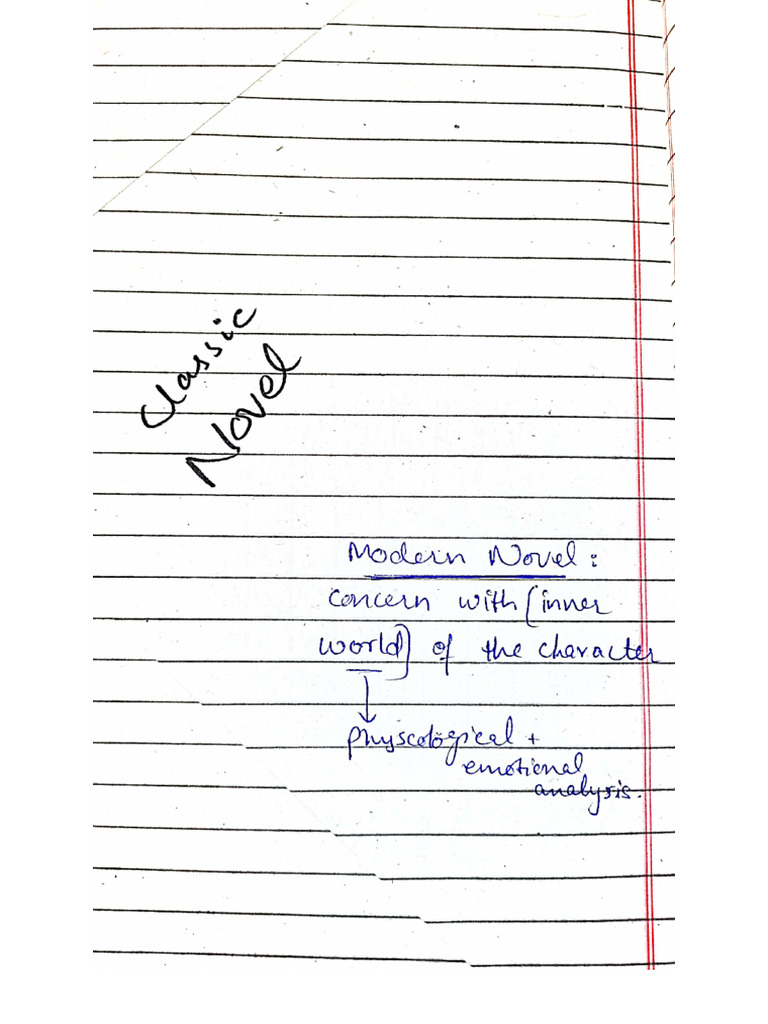 Classic
Novel
Modern Novel:
concern with (inner
world) of the character
physcological +
emotional
analysis.